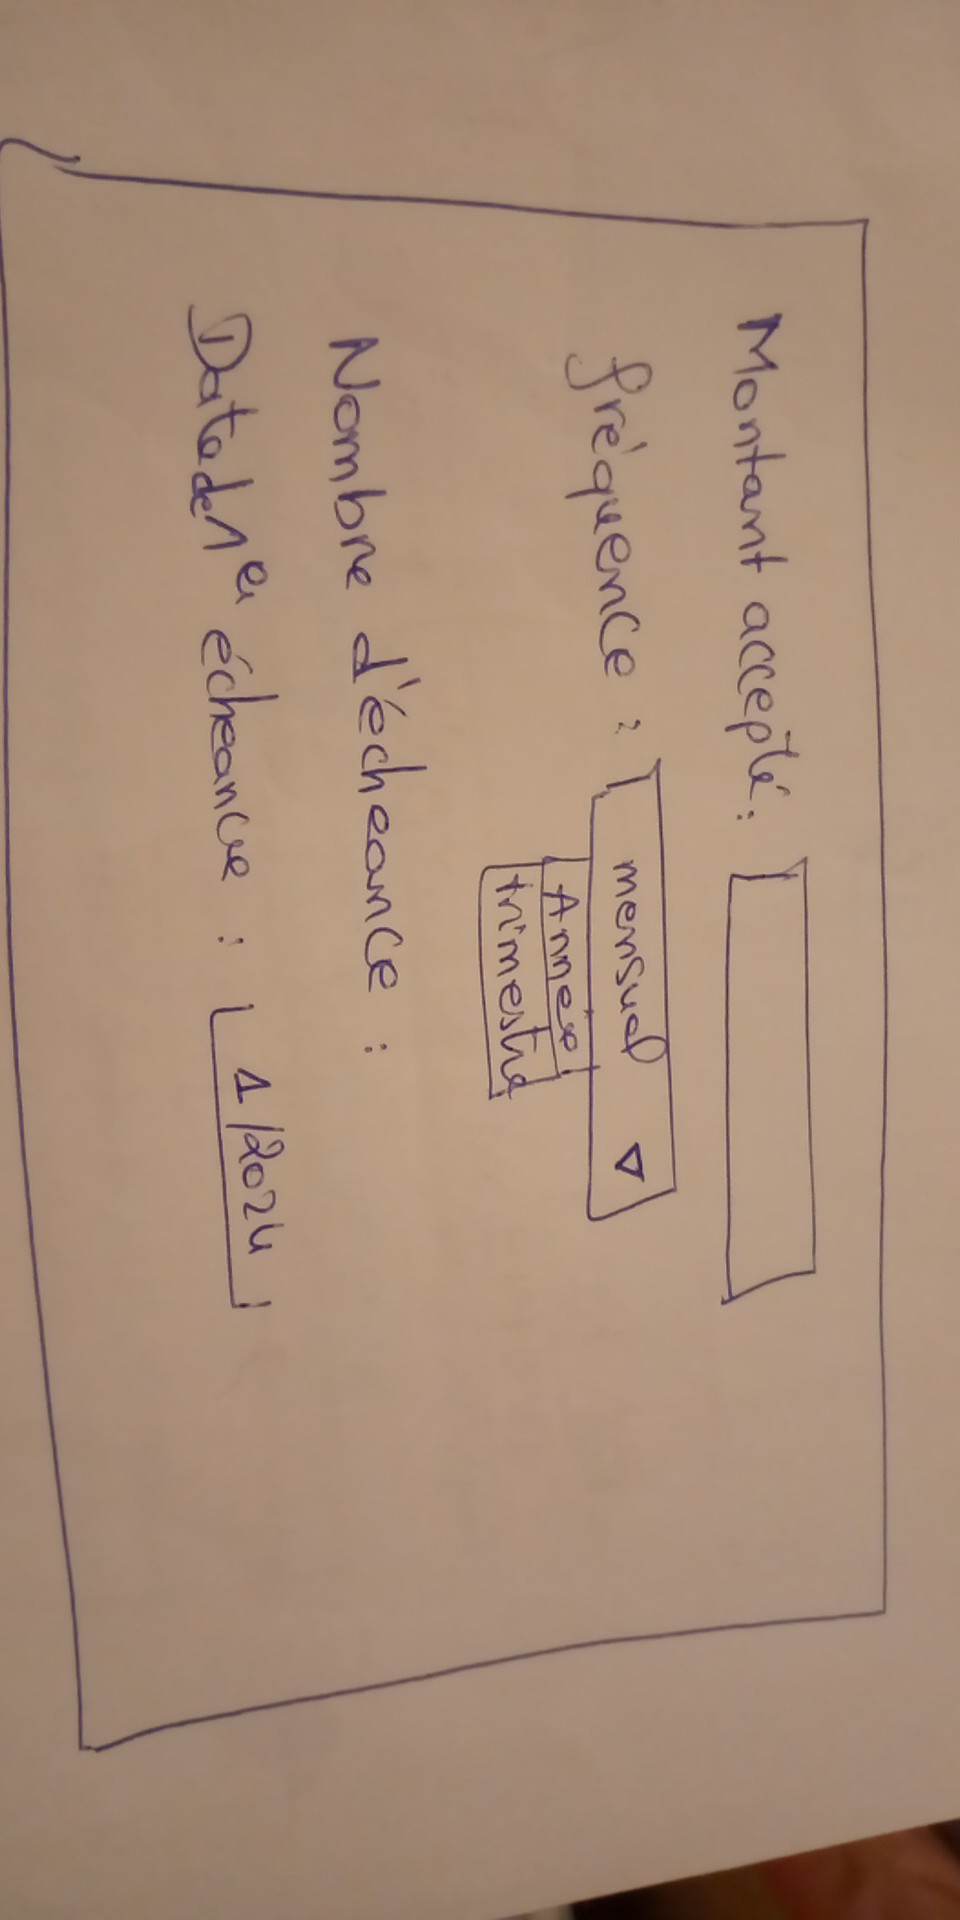 Montant accepté:
fréquence : mensuel
Année
trimestre
Nombre d'écheance :
Date de 1er écheance : 1/2024